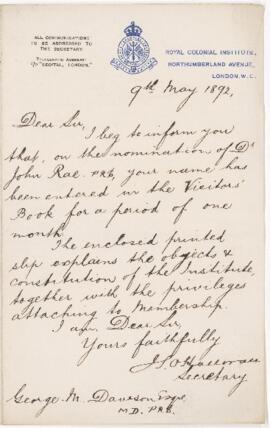 ALL COMMUNICATIONS
TO BE ADDRESSED TO
THE SECRETARY.
TELEGRAPHIC ADDRESS
ROYAL COLONIAL INSTITUTE,
NORTHUMBERLAND AVENUE,
LONDON. W.C.
9th May 1892,
Dear Sir,
I beg to inform you
that, on the nomination of Dr
John Rae F.R.S, your name has
been entered in the Visitors'
Book for a period of one
month.
The enclosed printed
slip explains the objects &
constitution of the Institute,
together with the privileges
attaching to Membership.
I am Dear Sir,
Yours faithfully
Secretary
George M. Dawson Esqre,
M.D. F.R.S.